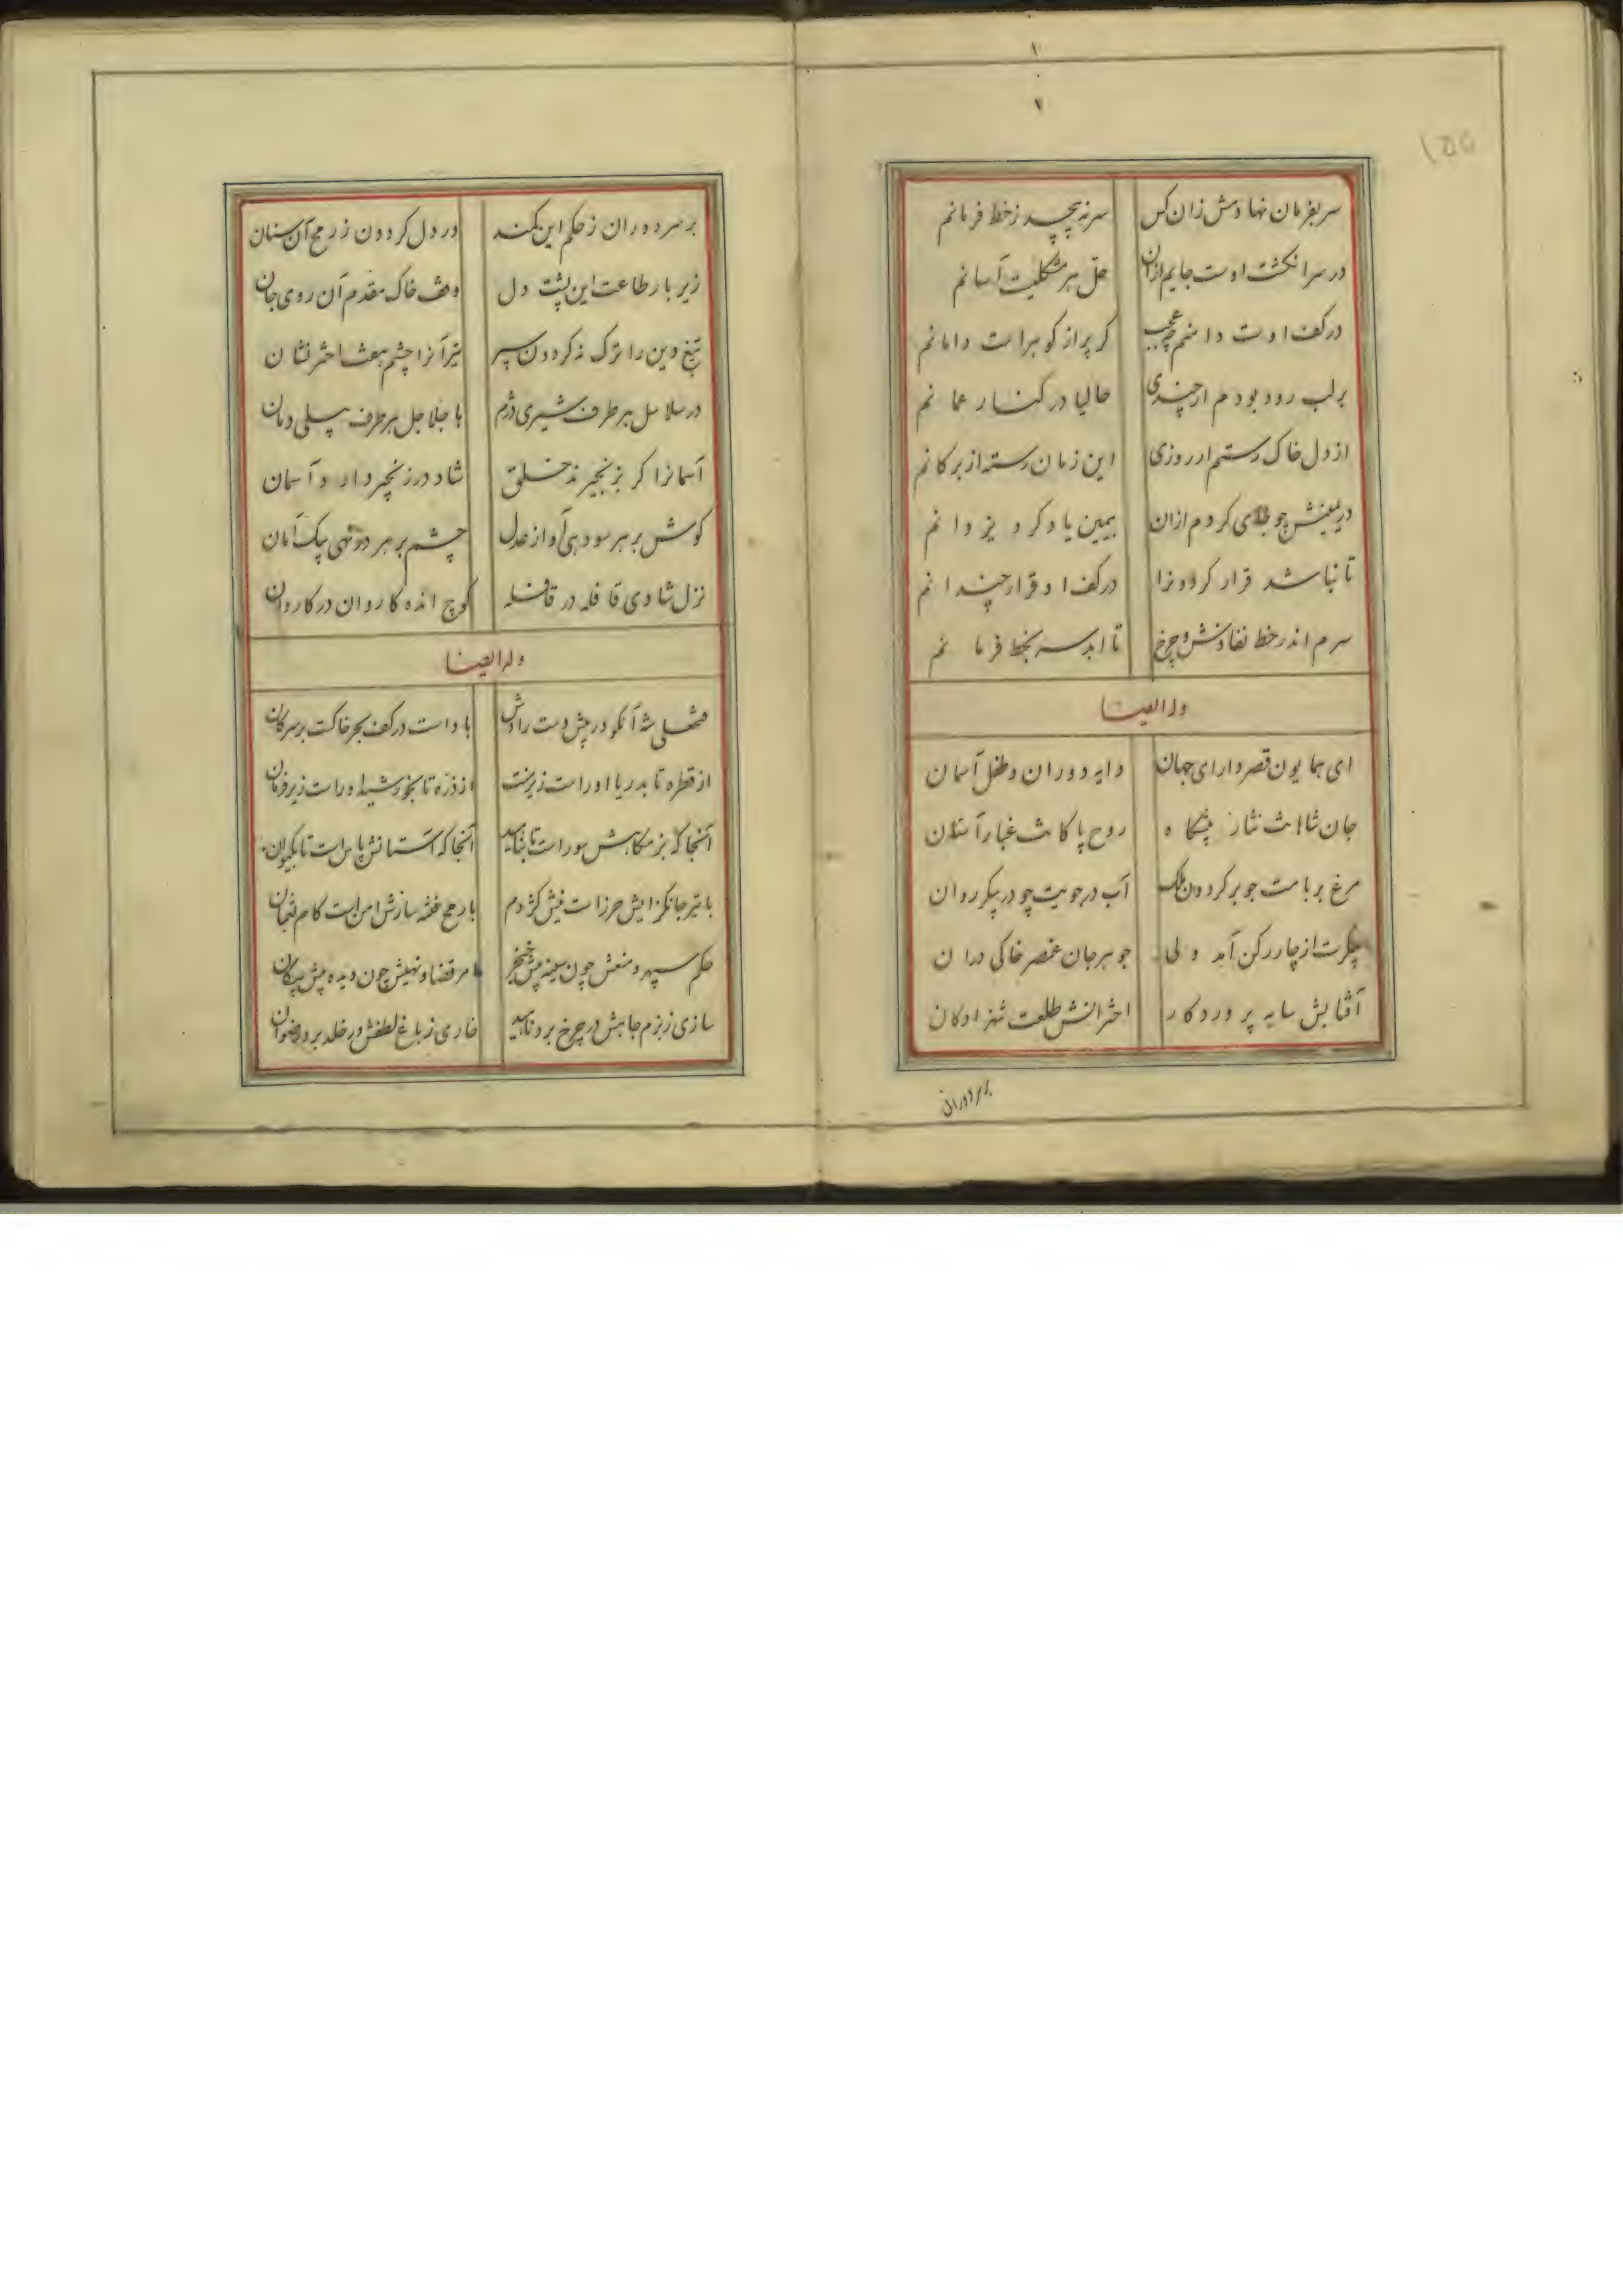 ۱
۲
سر بفرمان نهادمش زان کس سر نپیچد ز خط فرمانم
در سر انگشت اوست جایم ازان حل هر مشکلیست آسانم
در کف اوست دامنم چه عجب کر پر از کوهر است دامانم
بر لب رود بودم ار چندی حالیا در کنار عمانم
از دل خاک رستم ار روزی این زمان رسته از بر کانم
در یمینش چو جای کردم ازان بیمین یاد کرد یزدانم
تا نباشد قرار کردونرا در کف او قرار چندانم
سرم اندر خط نفاذش و چرخ تا ابد سر بخط فرمانم
وله ایضا
ای همایون قصر دارای جهان دایه دوران و طفل آسمان
جان شاهانت نثار پیشگاه روح پاکانت غبار آستان
مرغ بر بامت چو بر کردون ملک آب در جویت چو در پیکر روان
پیکرت از چار رکن آمد ولی جوهر جان عنصر خاکی دران
آفتابش سایه پروردکار اخترانش طلعت شهزادکان
بر سر دوران
بر سر دوران ز حکم این کمند در دل کردون ز رمح آن سنان
زیر بار طاعت این پشت دل وقف خاک مقدم آن روی جان
تیغ دین را ترک نه کردون سپر تیر آنرا چشم هفت اختر نشان
در سلاسل هر طرف شیری دژم با جلاجل هر طرف پیلی دمان
آسمانرا کر بزنجیرند خلق شاد در زنجیر دار و آسمان
کوش بر هر سو دهی آواز عدل چشم بر هر در نهی پیک امان
نزل شادی قافله در قافله کوچ انده کاروان در کاروان
وله ایضا
فتحعلی شه آنکو در پیش دست رادش باد است در کف بحر خاکست بر سر کان
از قطره تا بدریا او راست زیر منت از ذره تا بخورشید او راست زیر فرمان
آنجا که بزمکاهش سور است تا بناهید آنجا که آستانش پاس است تا بکیوان
با تیر جانکزایش حرز است نیش کژدم با رمح فتنه سازش امن است کام ثعبان
حکم سپهر و منعش چون سینه پیش خنجر امر قضا و نهیش چون دیده پیش پیکان
سازی ز بزم جاهش در چرخ برد ناهید خاری ز باغ لطفش در خلد برد رضوان